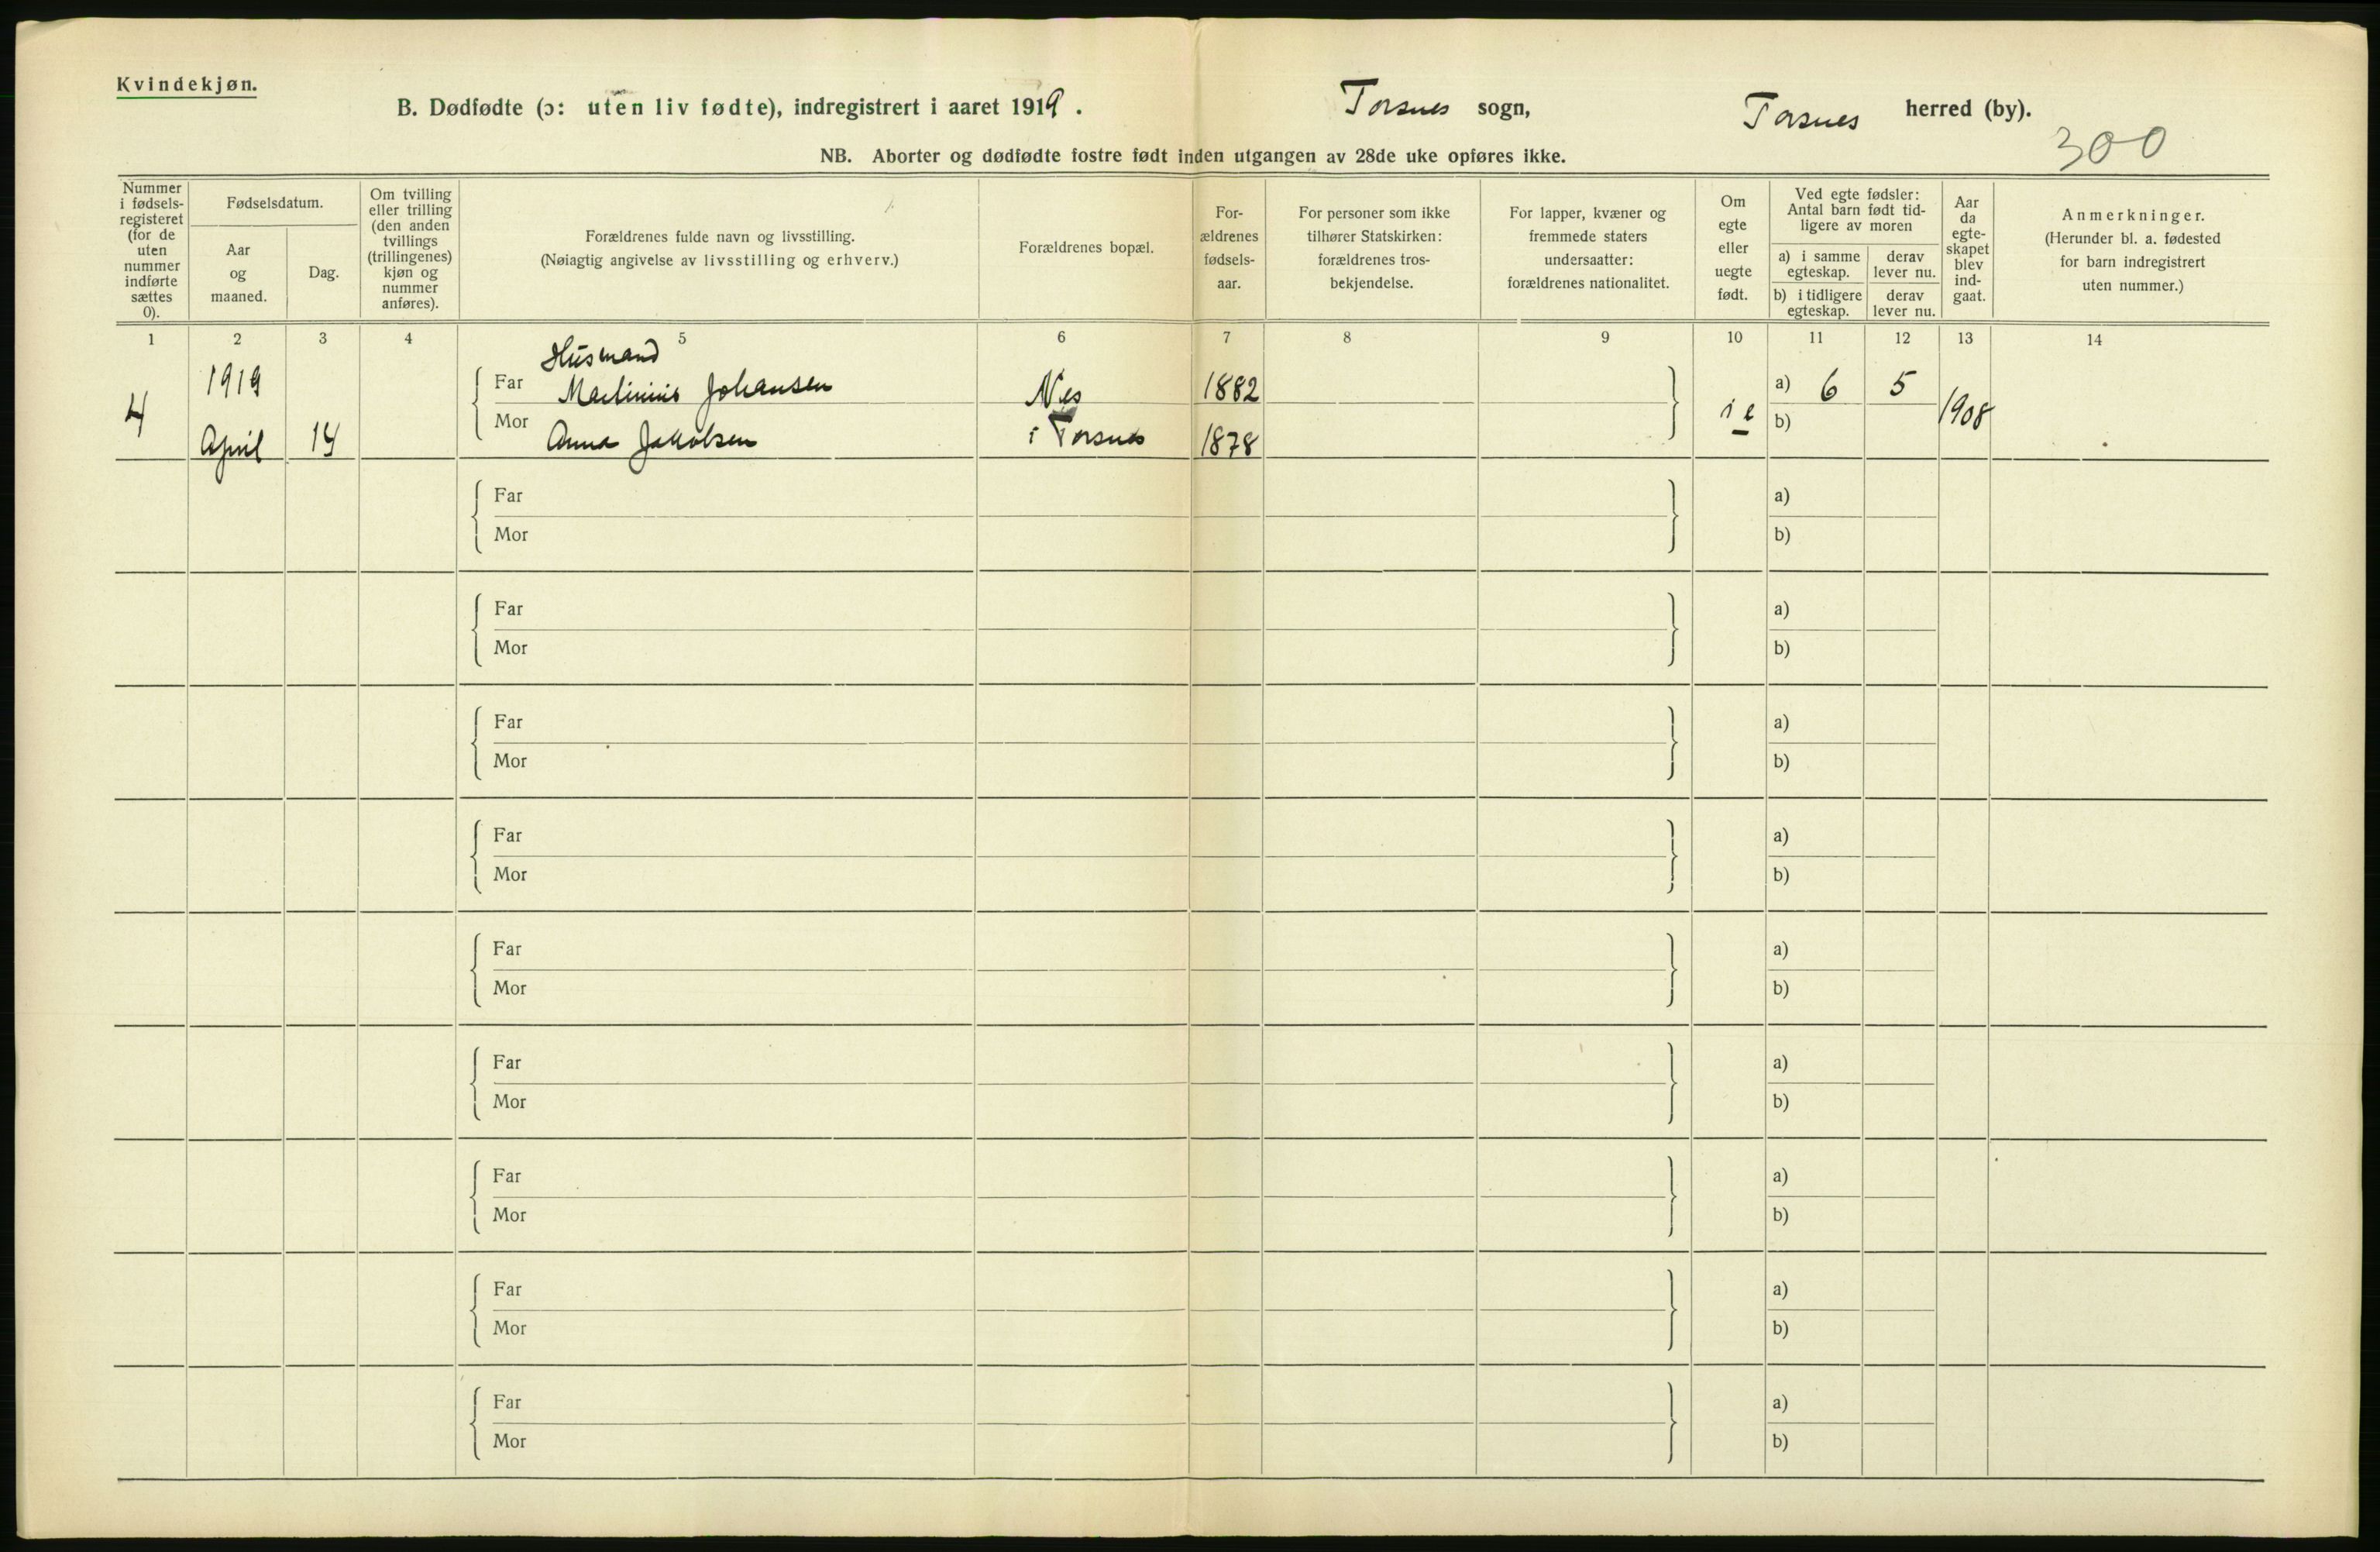 Kvindekjøn.
B. Dødfødte (ɔ: uten liv fødte), indregistrert i aaret 1919. Torsnes sogn, Torsnes herred (by).
300
NB. Aborter og dødfødte fostre født inden utgangen av 28de uke opføres ikke.
Nummer
i fødsels-
registeret
(for de
uten
nummer
indførte
sættes
0).
Fødselsdatum.
Aar
og
maaned.
Dag.
Om tvilling
eller trilling
(den anden
tvillings
(trillingenes)
kjøn og
nummer
anføres).
Forældrenes fulde navn og livsstilling.
(Nøiagtig angivelse av livsstilling og erhverv.)
Forældrenes bopæl.
For-
ældrenes
fødsels-
aar.
For personer som ikke
tilhører Statskirken:
forældrenes tros-
bekjendelse.
For lapper, kvæner og
fremmede staters
undersaatter:
forældrenes nationalitet.
Om
egte
eller
uegte
født.
Ved egte fødsler:
Antal barn født tid-
ligere av moren
a) i samme
egteskap.
derav
lever nu.
b) i tidligere
egteskap.
derav
lever nu.
Aar
da
egte-
skapet
blev
ind-
gaat.
Anmerkninger.
(Herunder bl. a. fødested
for barn indregistrert
uten nummer.)
1 2 3 4 5 6 7 8 9 10 11 12 13 14
Husmand
4 1919 Far Martinius Johansen Nes 1882 i e a) 6 5 1908
April 14 Mor Anna Jakobsen i Torsnes 1878 b)
Far a)
Mor b)
Far a)
Mor b)
Far a)
Mor b)
Far a)
Mor b)
Far a)
Mor b)
Far a)
Mor b)
Far a)
Mor b)
Far a)
Mor b)
Far a)
Mor b)